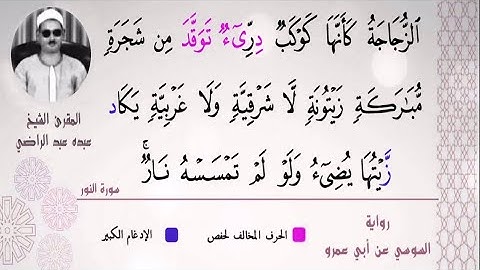 ٱلزُّجَاجَةُ كَأَنَّهَا كَوْكَبٌ دِرِّىٓءٌ تَوَقَّدَ مِن شَجَرَةٖ
مُّبَٰرَكَةٖ زَيْتُونَةٖ لَّا شَرْقِيَّةٖ وَلَا غَرْبِيَّةٖ يَكَاد
زَّيْتُهَا يُضِىٓءُ وَلَوْ لَمْ تَمْسَسْهُ نَارٞۚ
المقرئ الشيخ
عبده عبد الراضي
سورة النور
رواية
السوسي عن أبي عمرو
الحرف المخالف لحفص
الإدغام الكبير